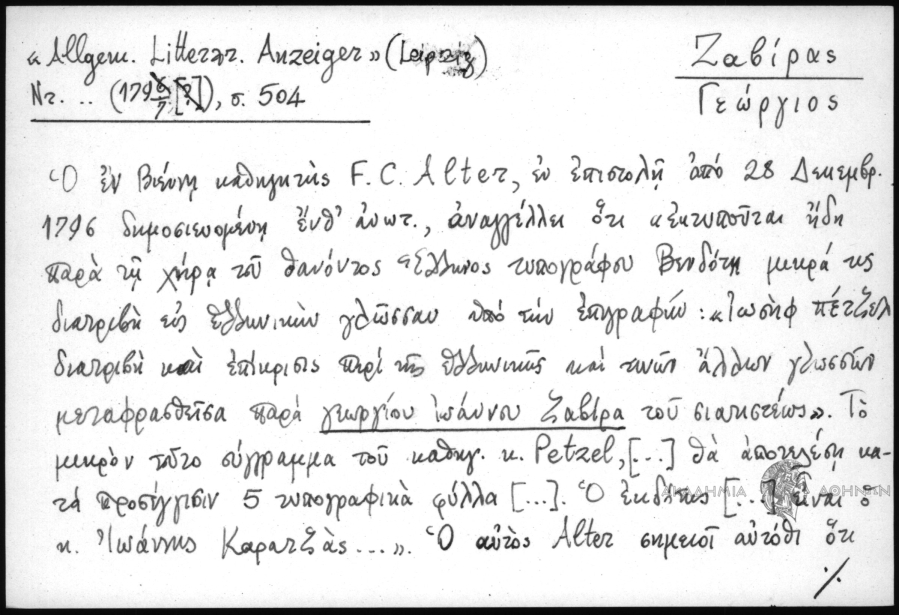 «Allgem. Litterar. Anzeiger» (Leipzig)
Nr. .. (1796/7 [?]), σ. 504
Ζαβίρας
Γεώργιος
Ὁ ἐν Βιέννῃ καθηγητὴς F. C. Alter, ἐν ἐπιστολῇ ἀπό 28 Δεκεμβρ.
1796 δημοσιευομένῃ ἔνθ' ἀνωτ., ἀναγγέλλει ὅτι «ἐκτυποῦται ἤδη
παρὰ τῇ χήρᾳ τοῦ θανόντος Ἕλληνος τυπογράφου Βενδότη μικρά τις
διατριβὴ εἰς Ἑλληνικὴν γλῶσσαν ὑπό τὴν ἐπιγραφήν: «Ἰωσὴφ πέτζελ
διατριβὴ καὶ ἐπίκρισις περί τῆς Ἑλληνικῆς καί τινῶν ἄλλων γλωσσῶν
μεταφρασθεῖσα παρά γεωργίου ἰωάννου Ζαβίρα τοῦ σιατιστέως». Τὸ
μικρὸν τοῦτο σύγραμμα τοῦ καθηγ. κ. Petzel, [...] θὰ ἀποτελέσῃ κα-
τά προσέγγισιν 5 τυπογραφικὰ φύλλα [...]. Ὁ ἐκδότης [...] εἶναι ὁ
κ. Ἰωάννης Καρατζᾶς ...». Ὁ αὐτὸς Alter σημειοῖ αὐτόθι ὅτι
./.
ΑΚΑΔΗΜΙΑ ΑΘΗΝΩΝ